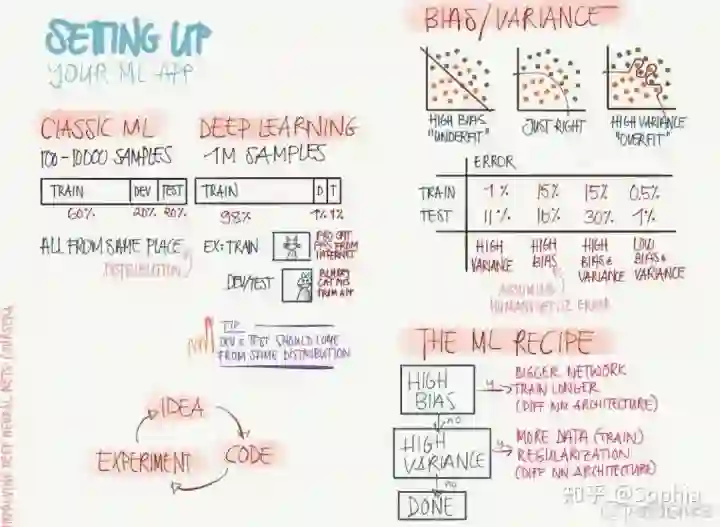 SETTING UP
YOUR ML APP
CLASSIC ML
100-10000 SAMPLES
TRAIN DEV TEST
60% 20% 20%
ALL FROM SAME PLACE
DISTRIBUTION
DEEP LEARNING
1M SAMPLES
TRAIN D T
98% 1% 1%
EX: TRAIN
PRO CAT
PICS FROM
INTERNET
DEV/TEST
BLURRY
CAT PICS
FROM APP
TIP
DEV & TEST SHOULD COME
FROM SAME DISTRIBUTION
IDEA
CODE
EXPERIMENT
IMPROVING DEEP NEURAL NETS / COURSERA
BIAS/VARIANCE
HIGH BIAS
"UNDERFIT"
JUST RIGHT
HIGH VARIANCE
"OVERFIT"
ERROR
TRAIN 1% 15% 15% 0.5%
TEST 11% 16% 30% 1%
HIGH VARIANCE
HIGH BIAS
HIGH BIAS & VARIANCE
LOW BIAS & VARIANCE
ASSUMING
HUMANS GET 0% ERROR
THE ML RECIPE
HIGH BIAS
Y
BIGGER NETWORK
TRAIN LONGER
(DIFF NN ARCHITECTURE)
no
HIGH VARIANCE
Y
MORE DATA (TRAIN)
REGULARIZATION
(DIFF NN ARCHITECTURE)
no
DONE
知乎 @Sophia